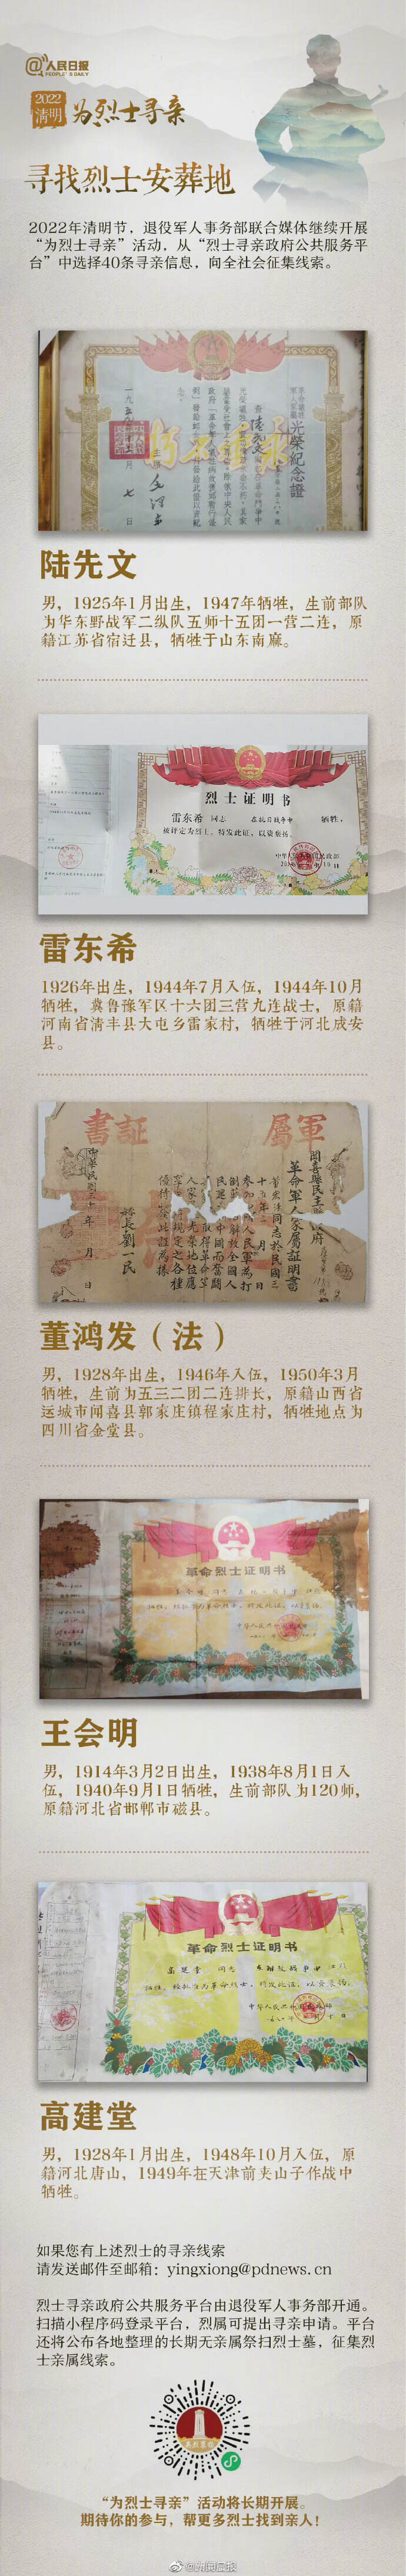 @人民日报
PEOPLE'S DAILY
2022
清明
为烈士寻亲
寻找烈士安葬地
2022年清明节，退役军人事务部联合媒体继续开展
“为烈士寻亲”活动，从“烈士寻亲政府公共服务平
台”中选择40条寻亲信息，向全社会征集线索。
光荣紀念證
陆先文
男，1925年1月出生，1947年牺牲，生前部队
为华东野战军二纵队五师十五团一营二连，原
籍江苏省宿迁县，牺牲于山东南麻。
烈士证明书
雷东希 同志 在抗日战争中 牺牲，
被评定为烈士。特发此证，以资褒扬。
雷东希
1926年出生，1944年7月入伍，1944年10月
牺牲，冀鲁豫军区十六团三营九连战士，原籍
河南省清丰县大屯乡雷家村，牺牲于河北成安
县。
書証 屬軍
革命軍人家屬証明書
縣長劉一民
董鸿发（法）
男，1928年出生，1946年入伍，1950年3月
牺牲，生前为五三二团二连排长，原籍山西省
运城市闻喜县郭家庄镇程家庄村，牺牲地点为
四川省金堂县。
革命烈士证明书
王会明
男，1914年3月2日出生，1938年8月1日入
伍，1940年9月1日牺牲，生前部队为120师，
原籍河北省邯郸市磁县。
革命烈士证明书
高建堂
男，1928年1月出生，1948年10月入伍，原
籍河北唐山，1949年在天津前夹山子作战中
牺牲。
如果您有上述烈士的寻亲线索
请发送邮件至邮箱：yingxiong@pdnews.cn
烈士寻亲政府公共服务平台由退役军人事务部开通。
扫描小程序码登录平台，烈属可提出寻亲申请。平台
还将公布各地整理的长期无亲属祭扫烈士墓，征集烈
士亲属线索。
“为烈士寻亲”活动将长期开展。
期待你的参与，帮更多烈士找到亲人！